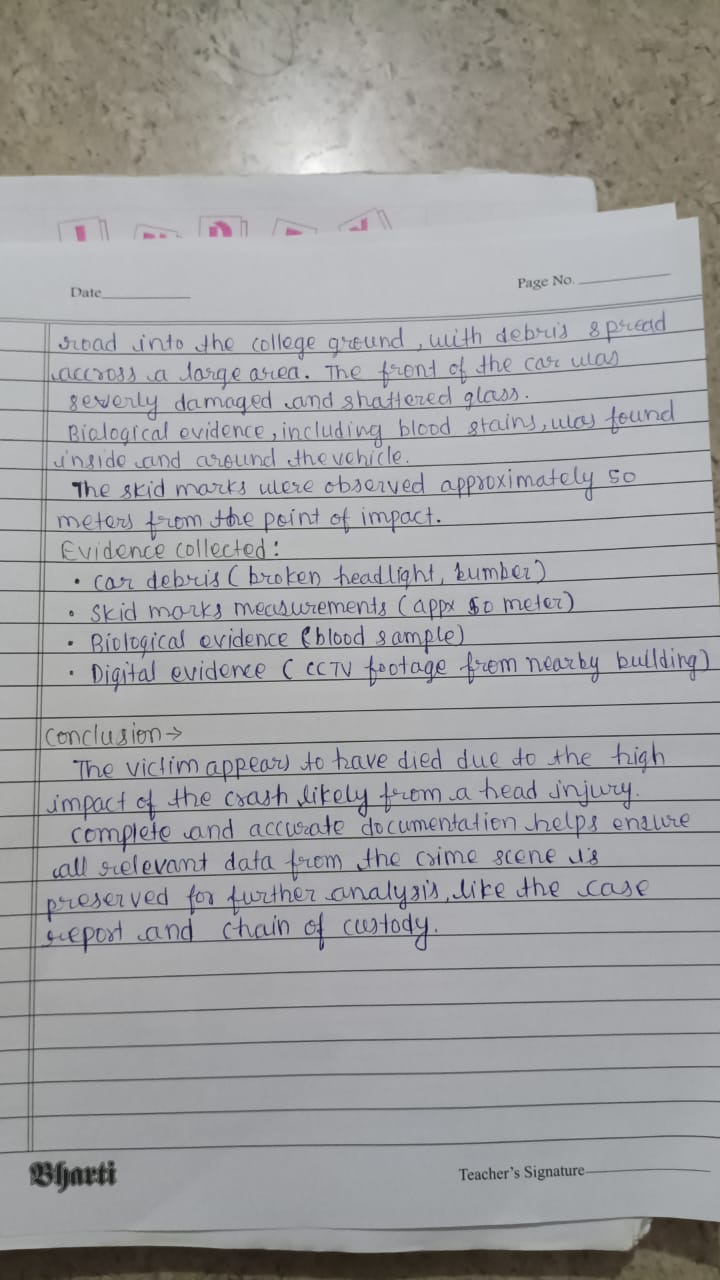 Date
Page No.
road into the college ground, with debris spread
accross a large area. The front of the car was
severly damaged and shattered glass.
Biological evidence, including blood stains, was found
inside and around the vehicle.
The skid marks were observed approximately 50
meters from the point of impact.
Evidence collected:
• Car debris (broken headlight, bumber)
• Skid marks measurements (appx 50 meter)
• Biological evidence (blood sample)
• Digital evidence (CCTV footage from nearby building)
Conclusion →
The victim appears to have died due to the high
impact of the crash likely from a head injury.
complete and accurate documentation helps ensure
all relevant data from the crime scene is
preserved for further analysis, like the case
report and chain of custody.
Bharti
Teacher's Signature